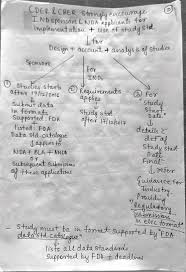 CDER & CBER strongly encourage
IND sponsors & NDA applicants for
implementation + use of study std.
for
Design + account + analysis of studies
Sponsors
① Studies starts
after 17/12/2016
Submit data
in formats
supported: FDA
listed: FDA
Data std. catalogue
appears to
NDA + BLA + ANDA
or
Subsequent submission
of these applications
For
INDs
② Requirements
applies
for
Study std
after 17/12/2017
③ For
"Study
Start
Date"
details &
def of
"Study Start
Date"
Refer
Guidance for
Industry
Providing
Regulatory
submissions
in elec. format
- Study must be in format supported by FDA
"data std. catalogue"
lists all data standards
supported by FDA + deadlines